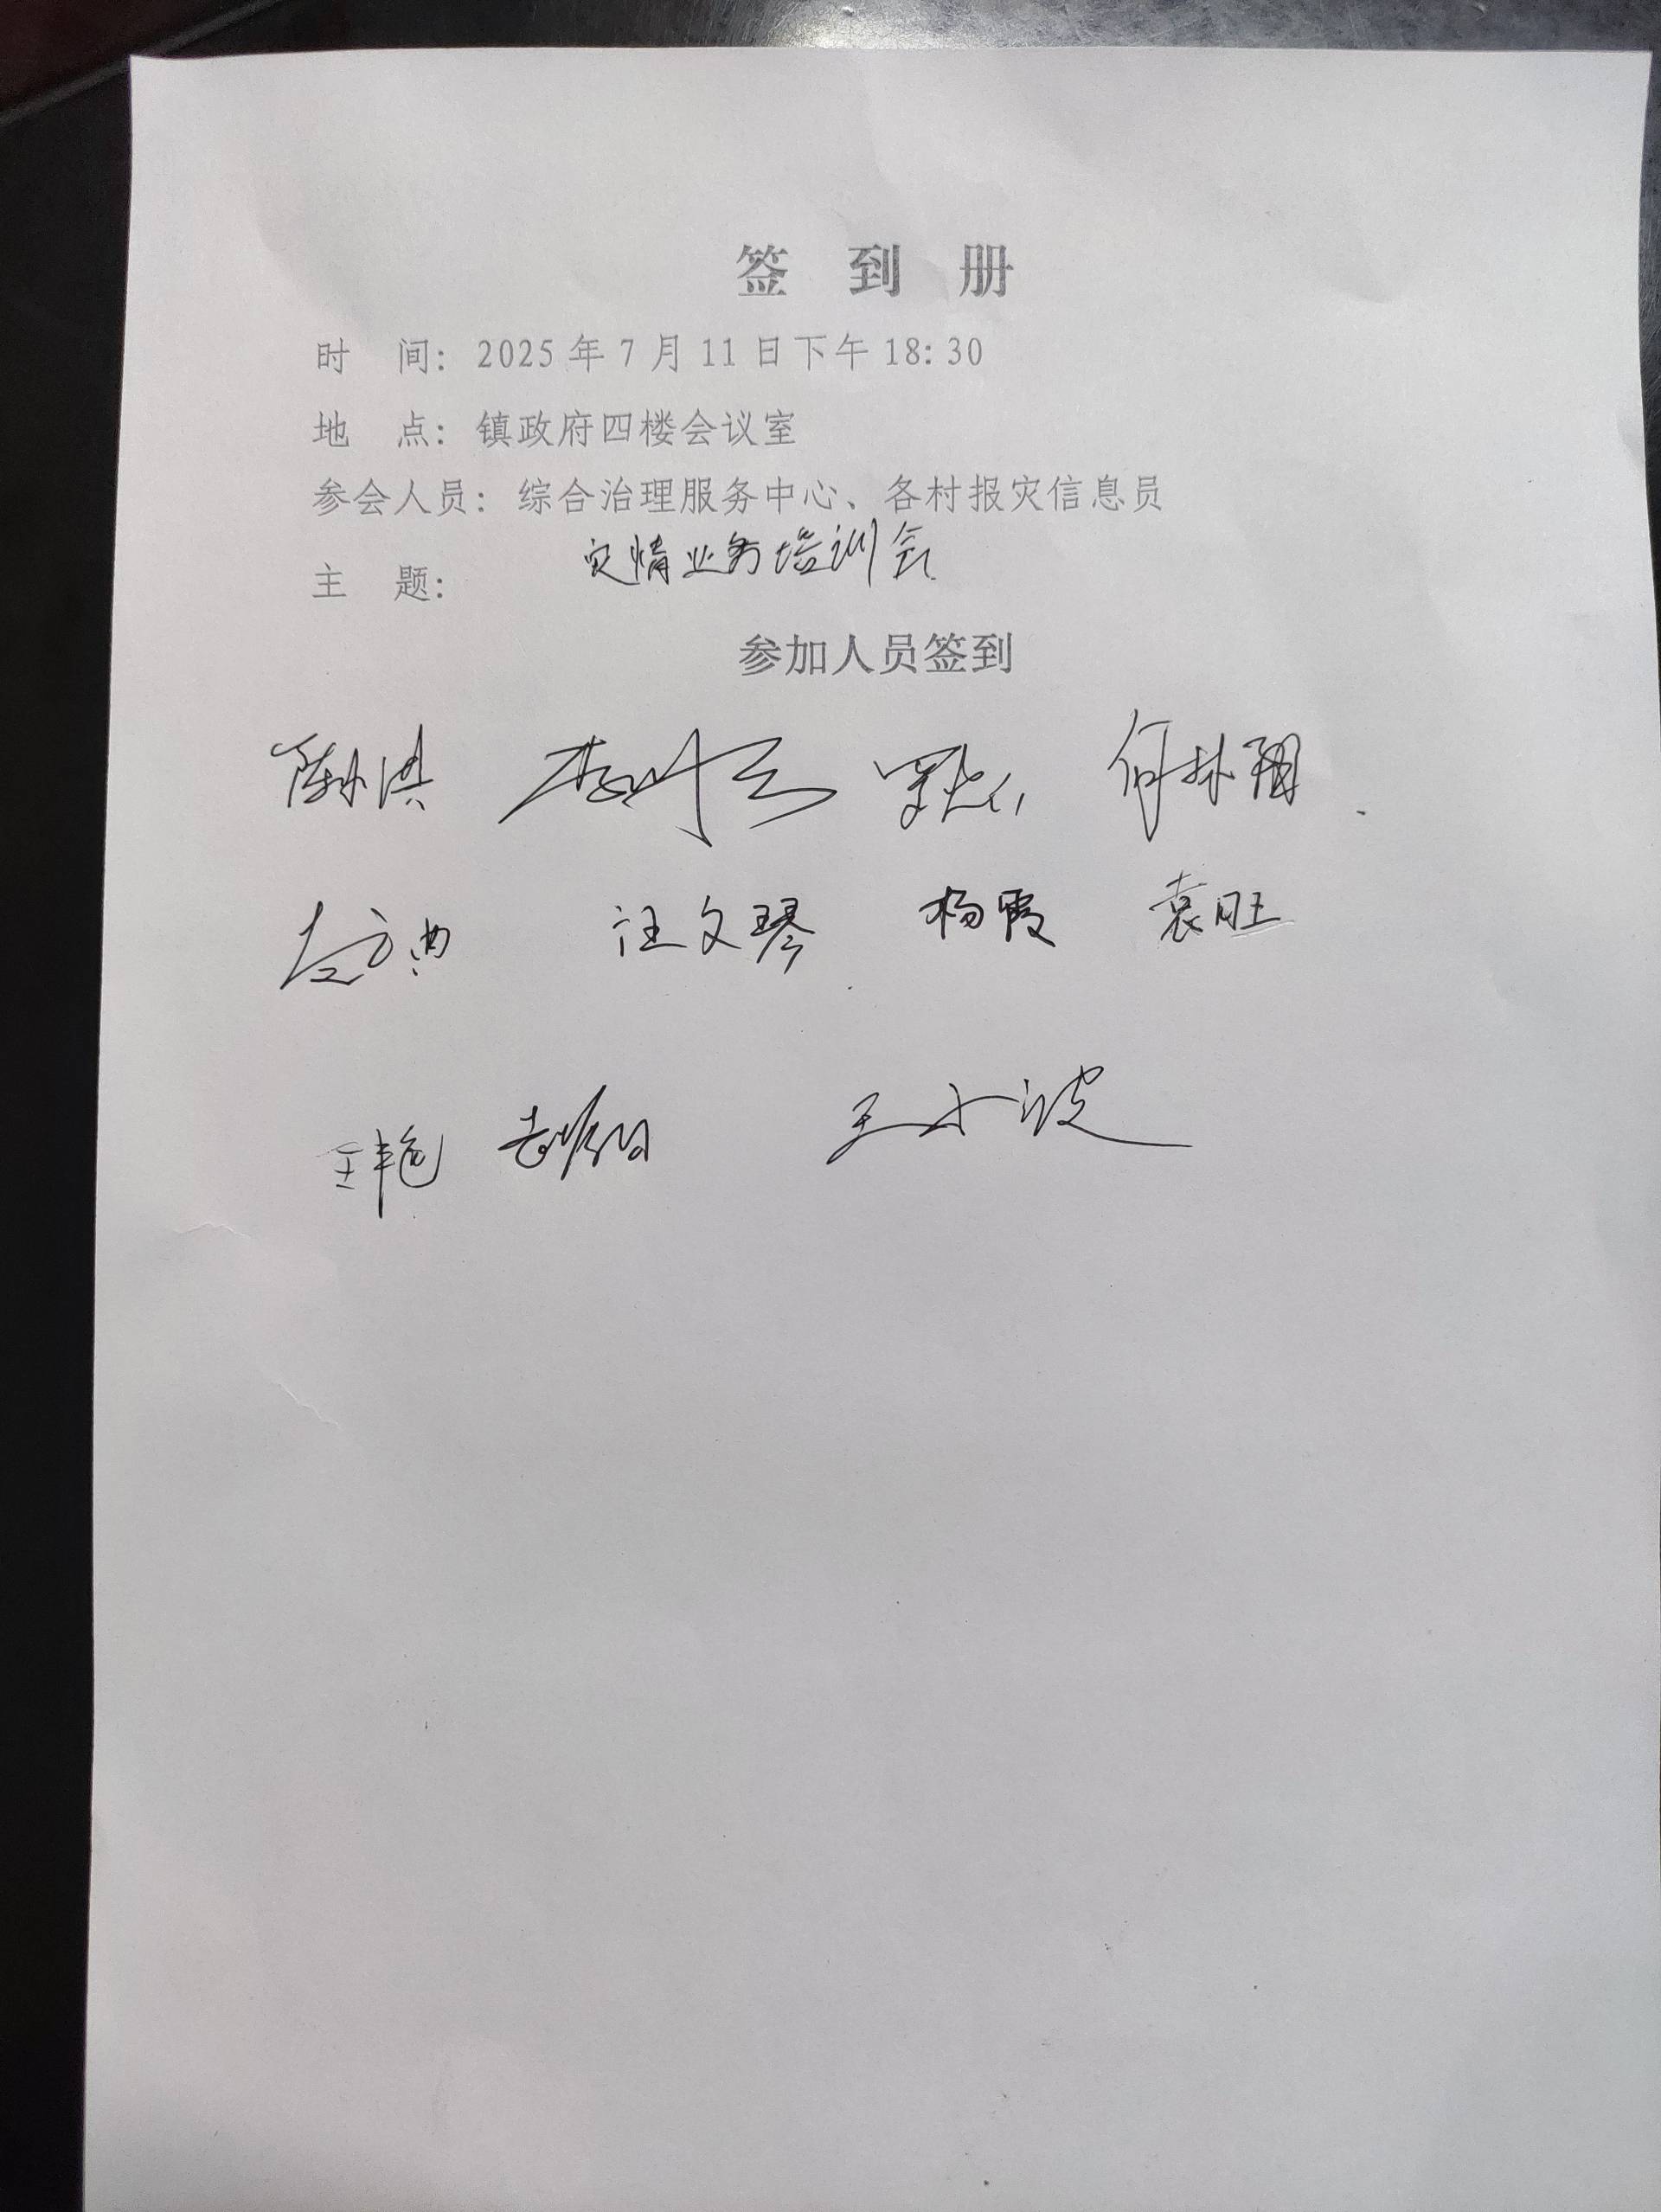 签到册
时 间：2025年7月11日下午18:30
地 点：镇政府四楼会议室
参会人员：综合治理服务中心、各村报灾信息员
主 题：灾情业务培训会
参加人员签到
何林翔
左方典 汪文琴 杨霞 袁旺
王艳 王小波